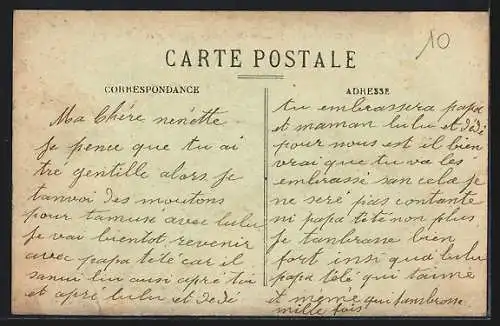 10
CARTE POSTALE
CORRESPONDANCE
Ma Chére nénette
Je pence que tu ai
tré gentille alors je
tanvoi des moutons
pour tamusé avec lulu
Je vai bientot revenir
avec papa tété car il
sanui liu ausi apré toi
et apré lulu et dédé
ADRESSE
tu embrassera papa
et maman lulu et dédé
pour nous est il bien
vrai que tu va lés
embrassé san cela je
ne seré pas contante
ni papa tété non plus
Je tanbrasse bien
fort insi qua lulu
papa tété qui taime
et mémé qui tambrasse
mille fois